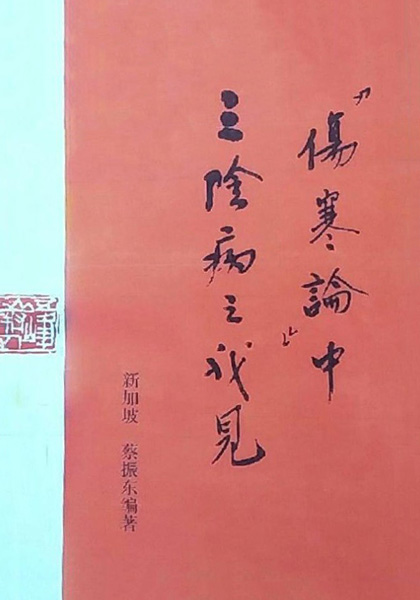 『傷寒論』中
三陰病之我見
新加坡 蔡振东编著